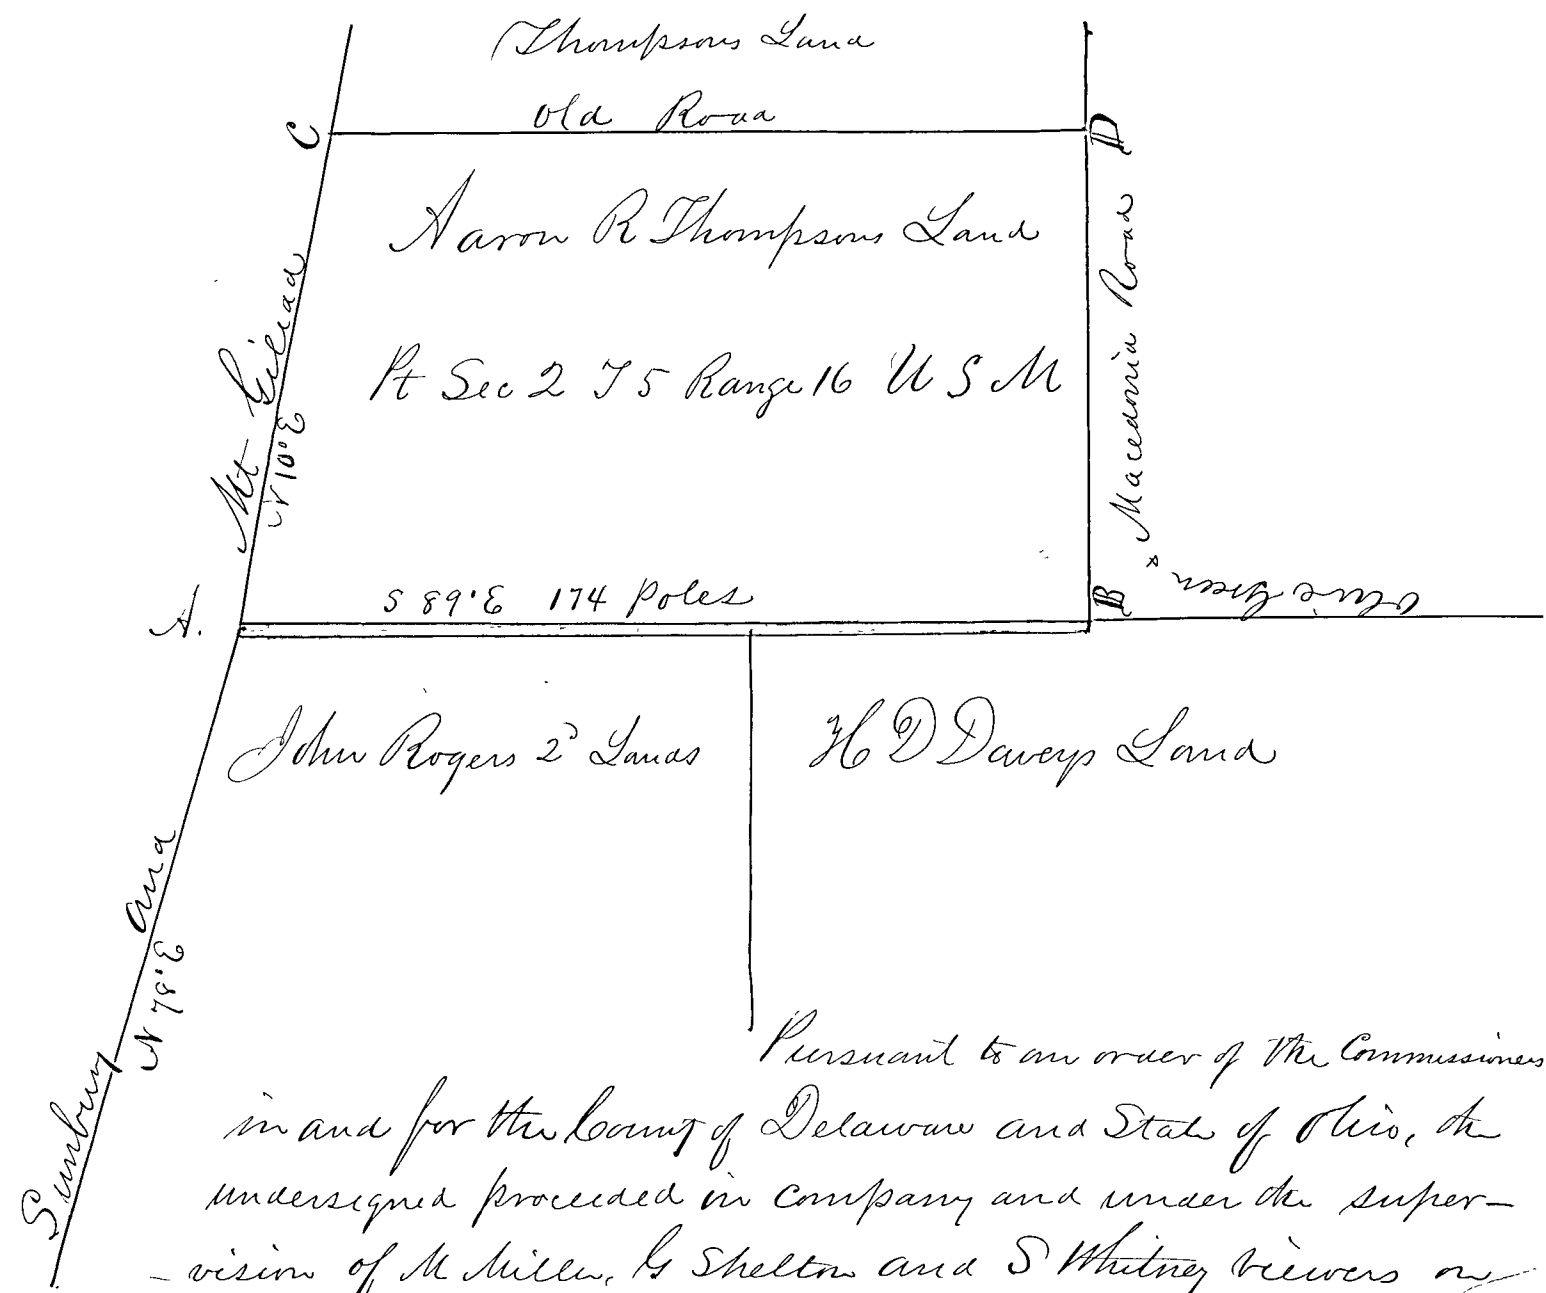 Thompsons Land
Old Road
C
D
Aaron R Thompsons Land
Pt Sec 2 T 5 Range 16 U S M
Mt Gilead
N 10° E
Olive Green & Macedonia Road
S 89° E 174 Poles
A.
B
John Rogers 2d Lands
H D Daveys Land
Sunbury and
N 78° E
Pursuant to an order of the Commissioners
in and for the County of Delaware and State of Ohio, the
undersigned proceeded in company and under the super-
-vision of M Miller, G Shelton and S Whitney viewers on